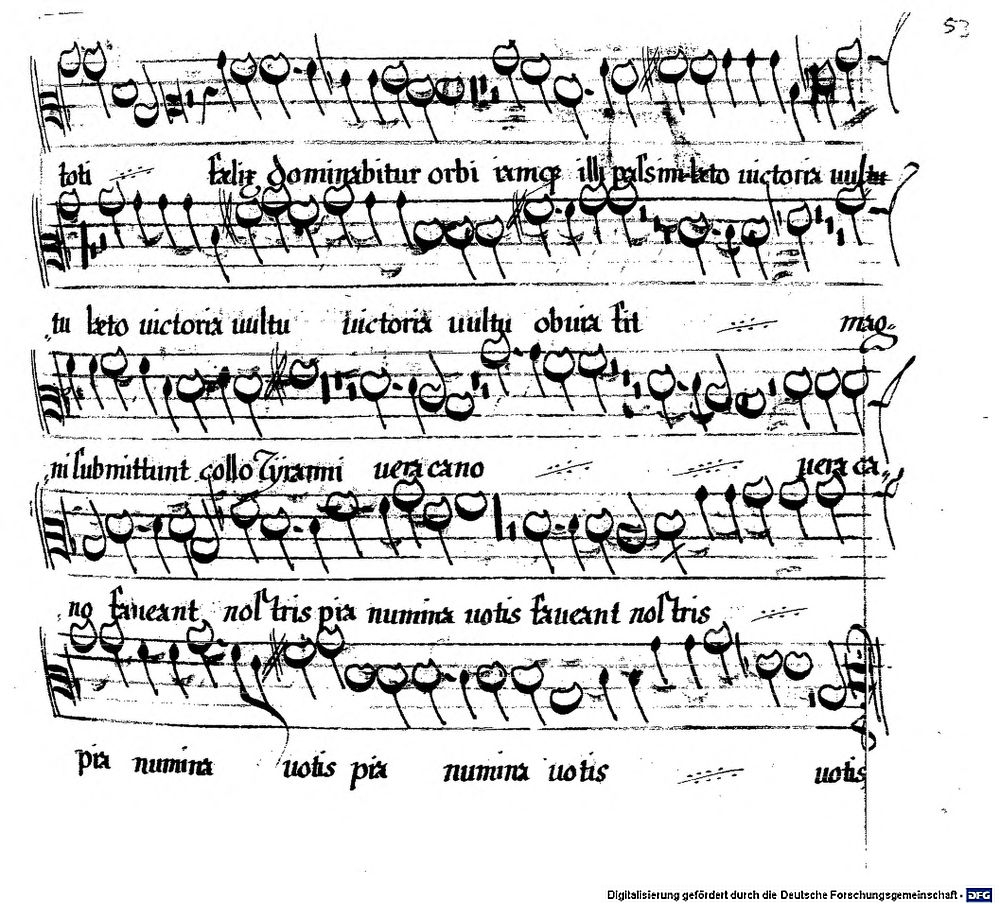 53
toti fælix dominabitur orbi iamq illi passim læto uictoria uultu
tu læto uictoria uultu uictoria uultu obuia fit mag-
ni submittunt collo Tyranni uera cano uera ca-
no faueant nostris pia numina uotis faueant nostris
pia numina uotis pia numina uotis uotis
Digitalisierung gefördert durch die Deutsche Forschungsgemeinschaft - DFG